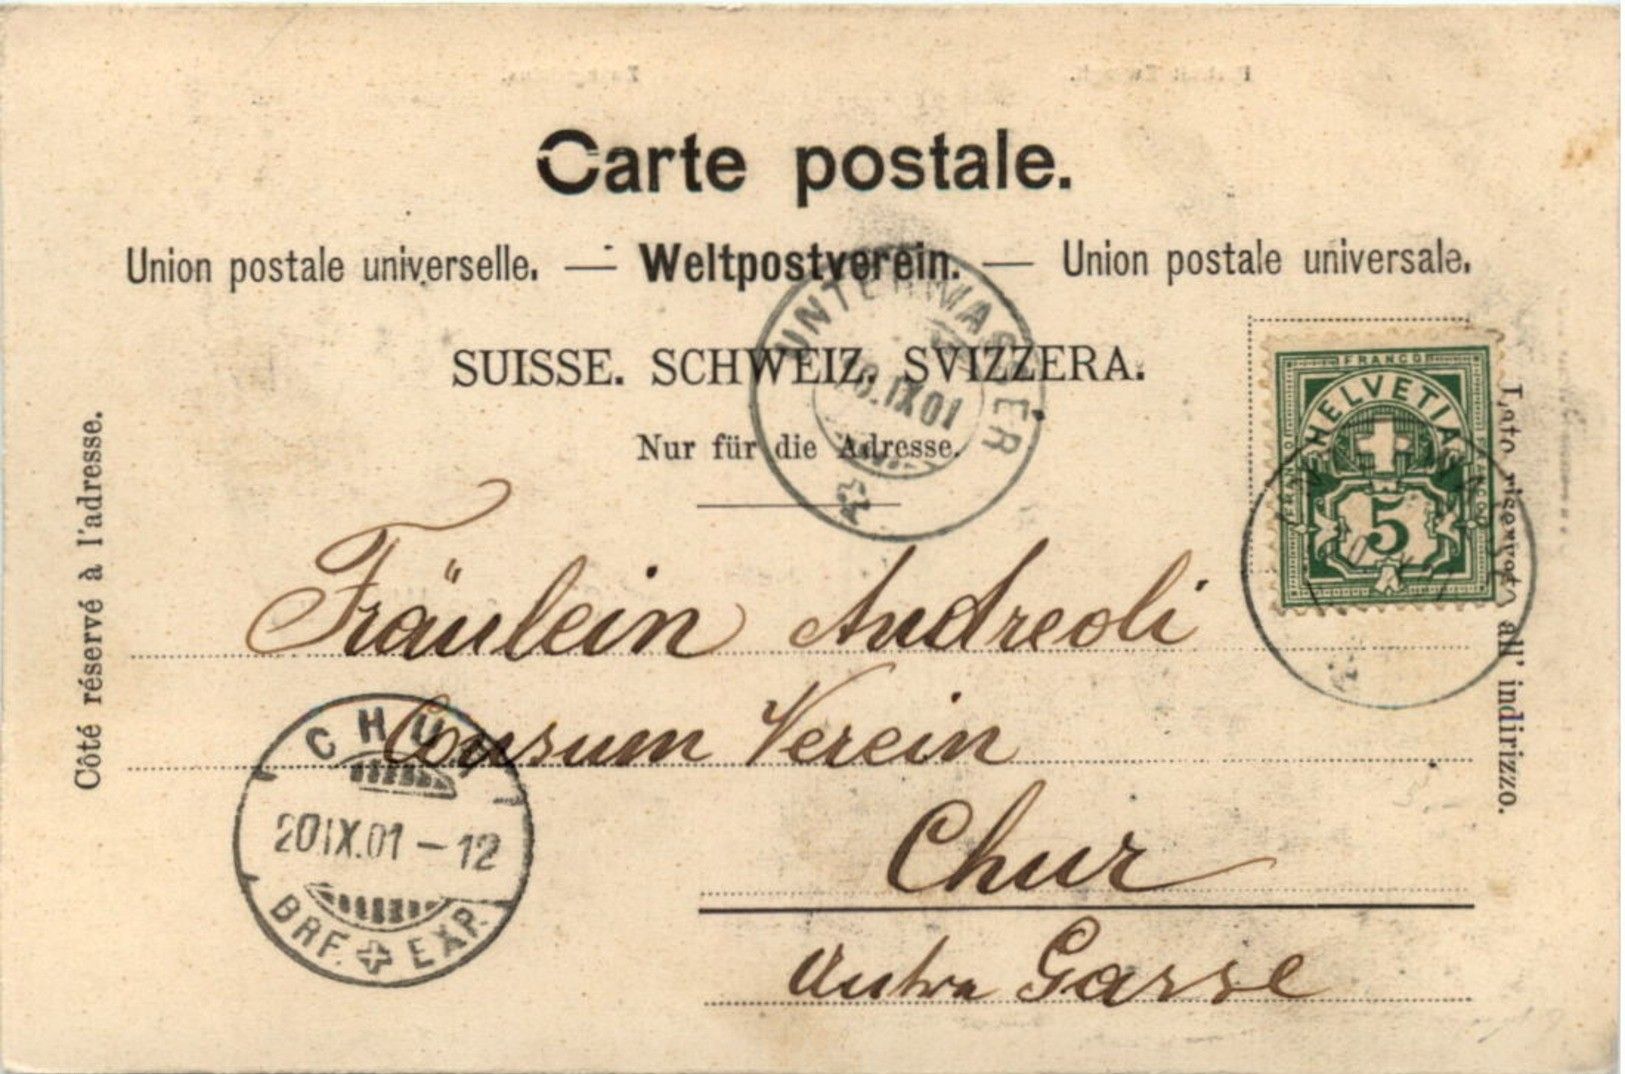 Carte postale.
Union postale universelle. — Weltpostverein. — Union postale universale.
SUISSE. SCHWEIZ. SVIZZERA.
Nur für die Adresse.
Côté réservé à l'adresse.
Lato riservato all' indirizzo.
UNTERWASSER
IX.01
FRANCO
HELVETIA
FRANCO
5
Fräulein Andreoli
Consum Verein
Chur
Gasse
CHUR
20.IX.01 – 12
BRF. EXP.